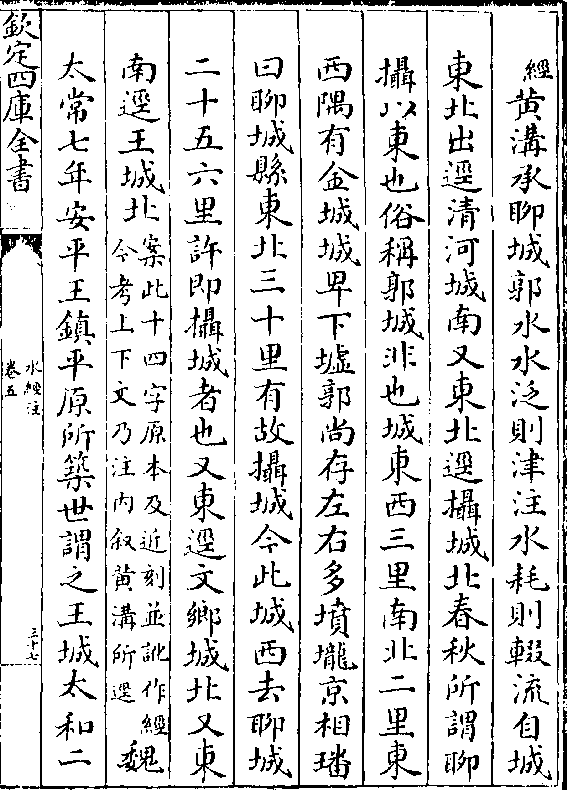 經黄溝承聊城郭水水泛則津注水耗則輟流自城
東北出逕清河城南又東北逕攝城北春秋所謂聊
攝以東也俗稱郭城非也城東西三里南北二里東
西隅有金城城卑下墟郭尚存左右多墳壠京相璠
曰聊城縣東北三十里有故攝城今此城西去聊城
二十五六里許即攝城者也又東逕文鄉城北又東
南逕王城北案此十四字原本及近刻並訛作經今考上下文乃注内叙黄溝所逕魏
太常七年安平王鎮平原所築世謂之王城太和二
欽定四庫全書
水經注
卷五
三十七